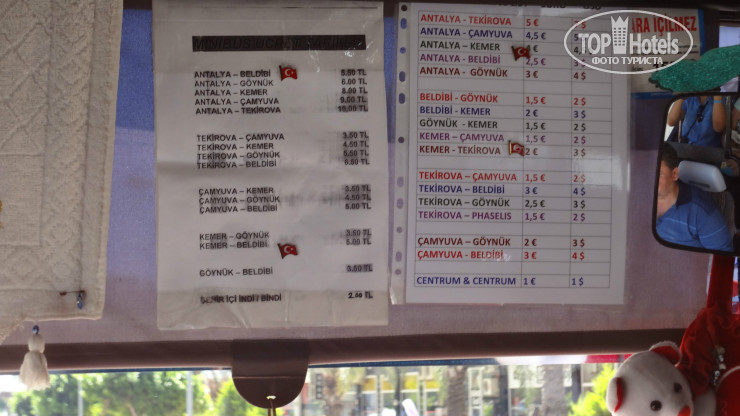 ANTALYA – BELDİBİ 5.50 TL
ANTALYA – GÖYNÜK 6.00 TL
ANTALYA – KEMER 8.00 TL
ANTALYA – ÇAMYUVA 9.00 TL
ANTALYA – TEKİROVA 10.00 TL
TEKİROVA – ÇAMYUVA 3.50 TL
TEKİROVA – KEMER 4.50 TL
TEKİROVA – GÖYNÜK 5.50 TL
TEKİROVA – BELDİBİ 6.50 TL
ÇAMYUVA – KEMER 3.50 TL
ÇAMYUVA – GÖYNÜK 4.50 TL
ÇAMYUVA – BELDİBİ 6.00 TL
KEMER – GÖYNÜK 3.50 TL
KEMER – BELDİBİ 5.00 TL
GÖYNÜK – BELDİBİ 3.50 TL
ŞEHİR İÇİ İNDİ / BİNDİ 2.00 TL
ANTALYA - TEKİROVA 5 €
ANTALYA - ÇAMYUVA 4,5 €
ANTALYA - KEMER 4 €
ANTALYA - BELDİBİ 2,5 € 3 $
ANTALYA - GÖYNÜK 3 € 4 $
BELDİBİ - GÖYNÜK 1,5 € 2 $
BELDİBİ - KEMER 2 € 3 $
GÖYNÜK - KEMER 1,5 € 2 $
KEMER – ÇAMYUVA 1,5 € 2 $
KEMER - TEKİROVA 2 € 3 $
TEKİROVA – ÇAMYUVA 1,5 € 2 $
TEKİROVA – BELDİBİ 3 € 4 $
TEKİROVA – GÖYNÜK 2,5 € 3 $
TEKİROVA – PHASELIS 1,5 € 2 $
ÇAMYUVA – GÖYNÜK 2 € 3 $
ÇAMYUVA – BELDİBİ 3 € 4 $
CENTRUM & CENTRUM 1 € 1 $
ARA İÇİLMEZ
TOP Hotels
ФОТО ТУРИСТА